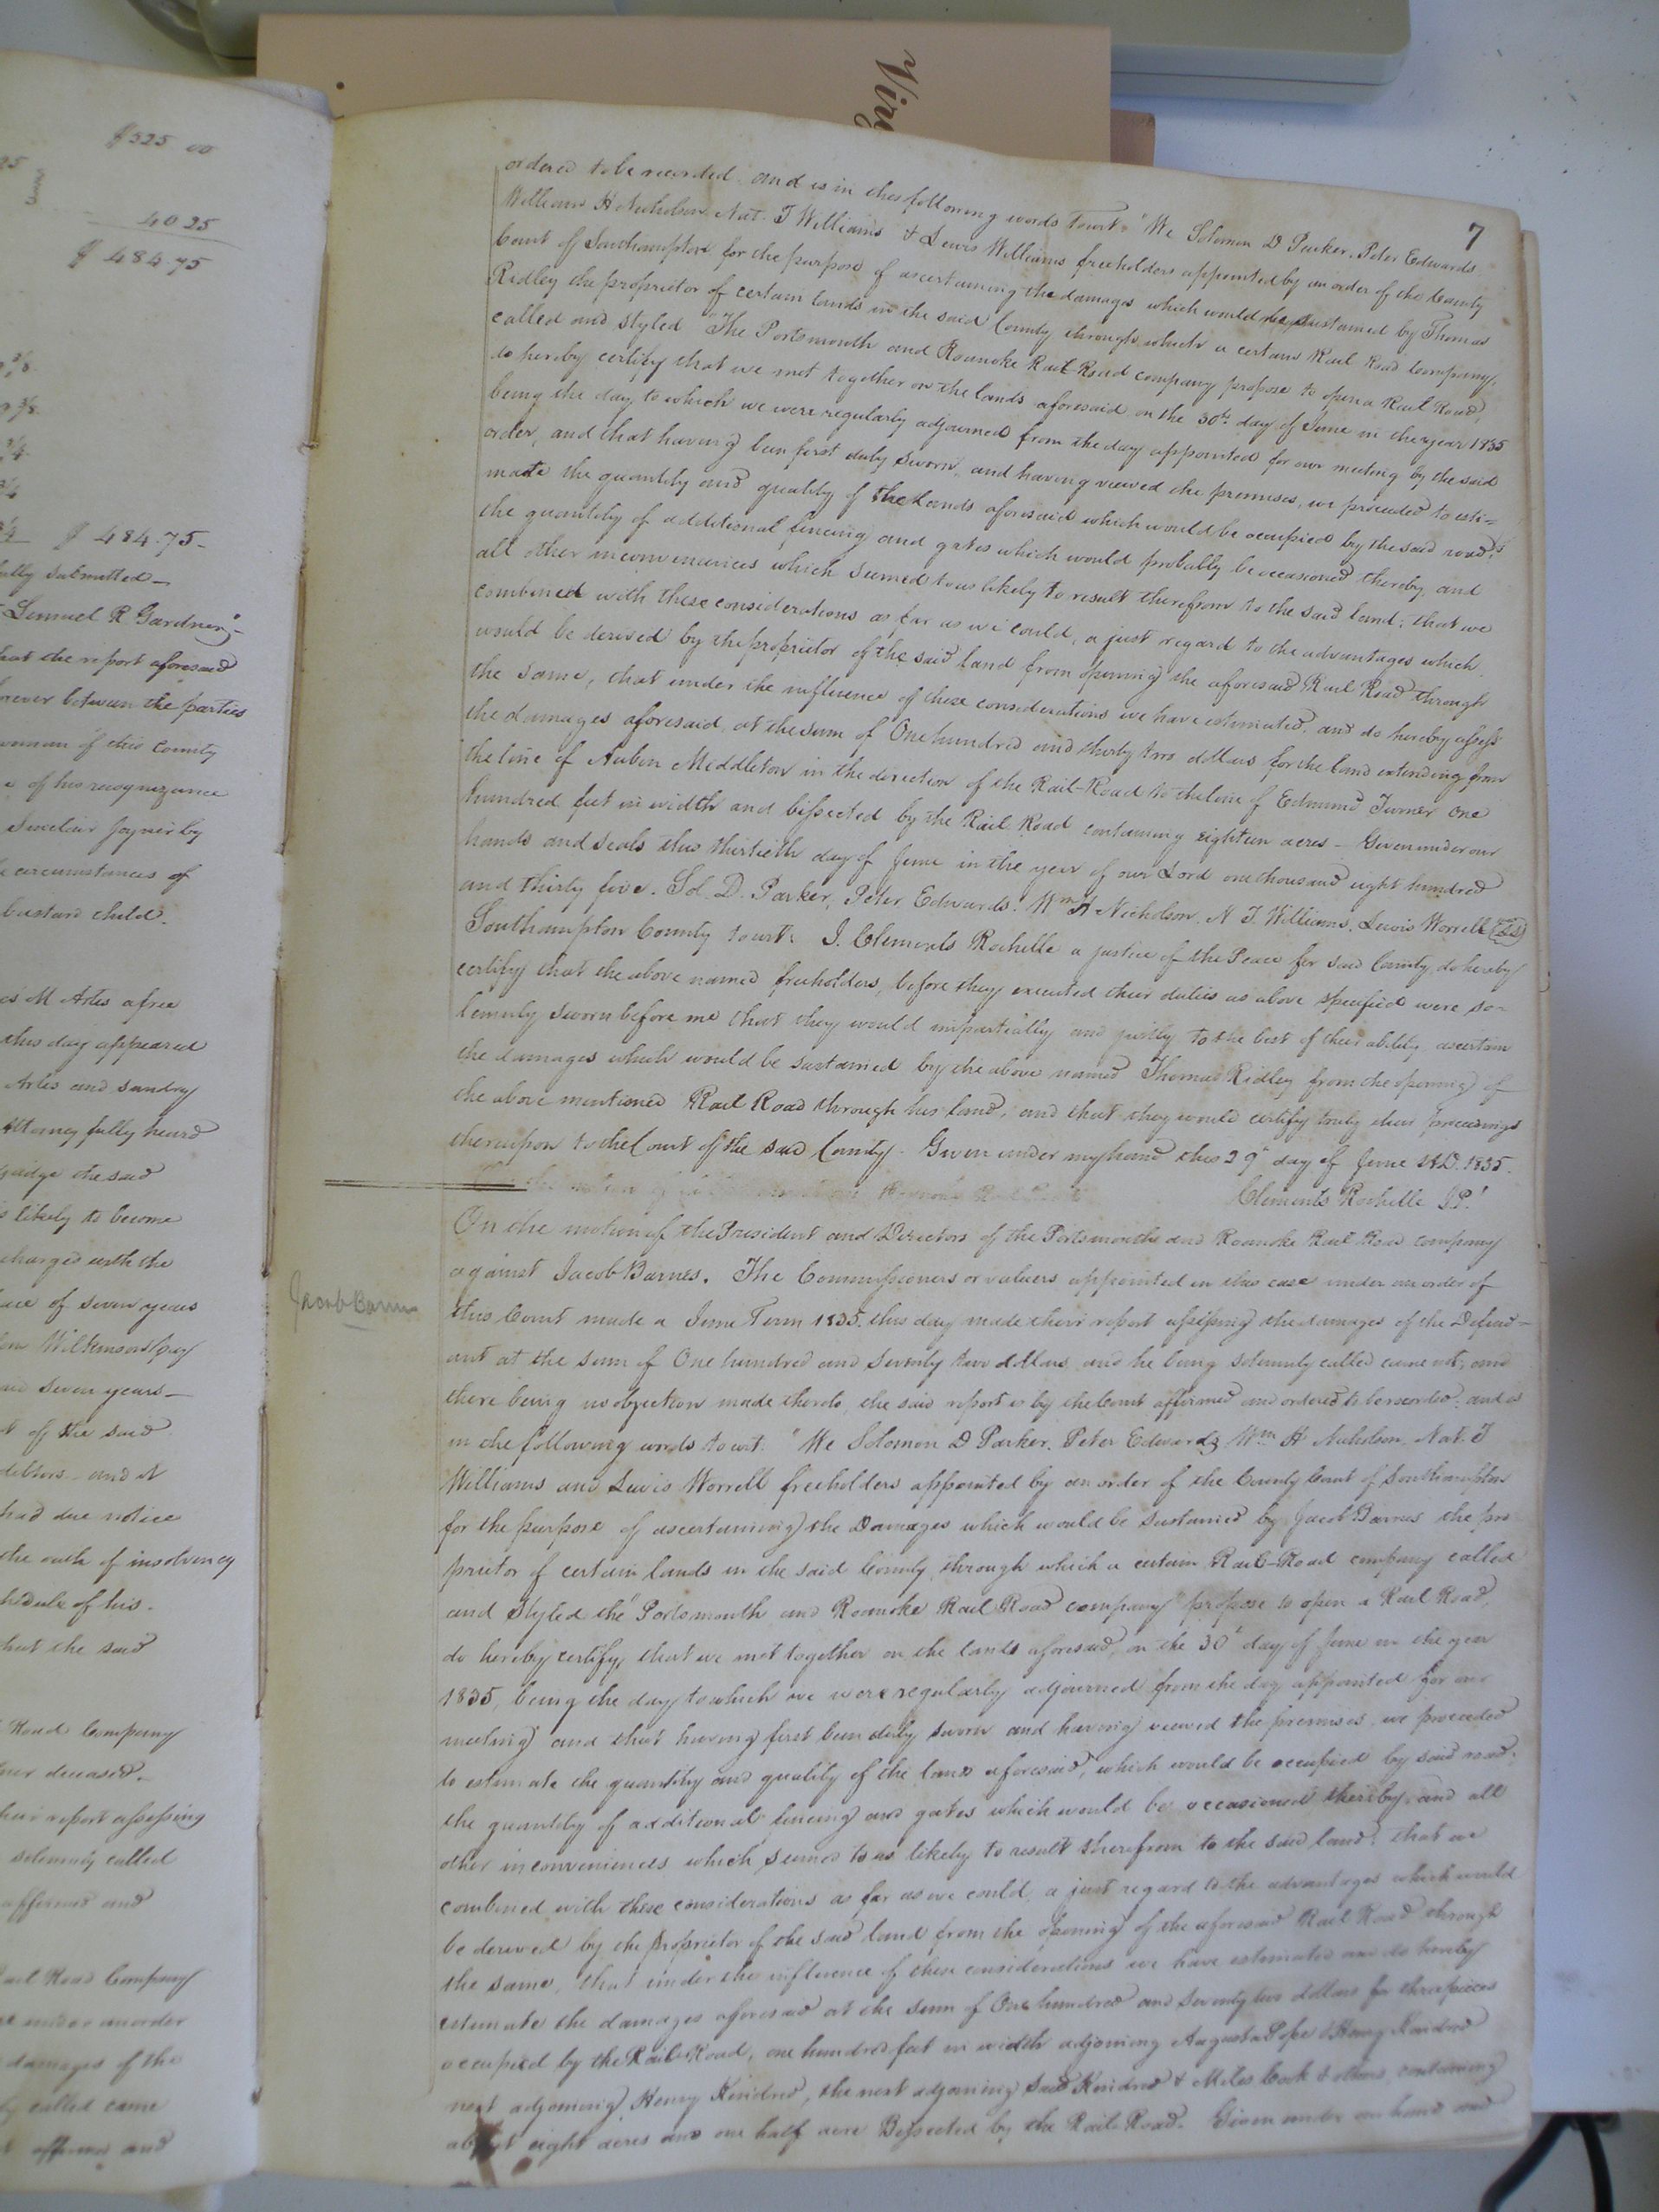 Vir
$525 00
25
40 25
$ 484.75
$ 484.75-
fully submitted-
Lemuel R Gardner"-
that the report aforesaid
forever between the parties
woman of this County
of his recognizance
Sinclair Joyner by
circumstances of
bastard child.
M Artes a free
this day appeared
Artes and sundry
Attorney fully heard
judge the said
likely to become
charged with the
of seven years
seven years-
of the said
debtors. and it
had due notice
the oath of insolvency
of his.
that the said
Road Company
deceased.-
report assessing
solemnly called
affirmed and
Rail Road Company
under an order
damages of the
called came
affirmed and
7
ordered to be recorded. and is in the following words Towit: "We Solomon D Parker, Peter Edwards
William H Nicholson Nat. T Williams & Lewis Williams freeholders appointed by an order of the County
Court of Southampton for the purpose of ascertaining the damages which would be sustained by Thomas
Ridley the proprietor of certain lands in the said County through which a certain Rail Road Company,
called and styled "The Portsmouth and Roanoke Rail-Road company propose to open a Rail Road,
do hereby certify that we met together on the lands aforesaid on the 30th day of June in the year 1835
being the day to which we were regularly adjourned from the day appointed for our meeting by the said
order, and that having been first duly sworn, and having viewed the premises, we proceeded to esti=
mate the quantity and quality of the Lands aforesaid which would be occupied by the said road;
the quantity of additional fencing and gates which would probably be occasioned thereby and
all other inconveniences which seemed to us likely to result therefrom to the said land; that we
combined with these considerations as far as we could, a just regard to the advantages which
would be derived by the proprietor of the said land from opening the aforesaid Rail Road through
the same, that under the influence of these considerations we have estimated, and do hereby assess
the damages aforesaid, at the sum of One hundred and thirty two dollars for the land extending from
the line of Auben Middleton in the direction of the Rail-Road to the line of Edmund Turner one
hundred feet in width and bissected by the Rail Road containing eighteen acres - Given under our
hands and seals this thirtieth day of June in the year of our Lord one thousand eight hundred
and thirty five. Sol. D. Parker, Peter Edwards. Wm H Nicholson. N T. Williams, Lewis Worrell (LS)
Southampton County towit: I. Clements Rochelle a justice of the Peace for said County, do hereby
certify that the above named freeholders, before they executed their duties as above specified were so=
lemnly sworn before me that they would impartially and justly to the best of their ability ascertain
the damages which would be sustained by the above named Thomas Ridley from the opening of
the above mentioned Rail Road through his land, and that they would certify truly their proceedings
thereupon to the Court of the said County. Given under my hand this 29th day of June A.D. 1835.
Clements Rochelle J.P.
On the motion of the President and Directors of the Portsmouth and Roanoke Rail Road company
Jacob Barnes
against Jacob Barnes. The Commissioners or valuers appointed in this case under an order of
this Court made a June Term 1835. this day made their report assessing the damages of the Defend=
ant at the sum of One hundred and seventy two dollars and he being solemnly called came not, and
there being no objection made thereto, the said report is by the Court affirmed and ordered to be recorded, and is
in the following words towit. "We Solomon D Parker, Peter Edwards Wm H Nicholson, Nat. T
Williams and Lewis Worrell freeholders appointed by an order of the County Court of Southampton
for the purpose of ascertaining the Damages which would be sustained by Jacob Barnes the pro
prietor of certain lands in the said County, through which a certain Rail-Road company called
and styled the "Portsmouth and Roanoke Rail Road company" propose to open a Rail Road,
do hereby certify, that we met together on the lands aforesaid, on the 30th day of June in the year
1835, being the day to which we were regularly adjourned from the day appointed for our
meeting and that having first been duly sworn and having viewed the premises, we proceeded
to estimate the quantity and quality of the lands aforesaid, which would be occupied by said road;
the quantity of additional fencing and gates which would be occasioned thereby and all
other inconveniences which seemed to us likely to result therefrom to the said land; that we
combined with these considerations as far as we could, a just regard to the advantages which would
be derived by the proprietor of the said land from the opening of the aforesaid Rail Road through
the same, that under the influence of these considerations we have estimated and do hereby
estimate the damages aforesaid at the sum of One hundred and seventy two dollars for three pieces
occupied by the Rail Road, one hundred feet in width adjoining Augusta Pope & Henry Kindred
next adjoining Henry Kindred, the next adjoining said Kindred & Miles Cook & others, containing
about eight acres and one half acre Bissected by the Rail Road. Given under our hand and